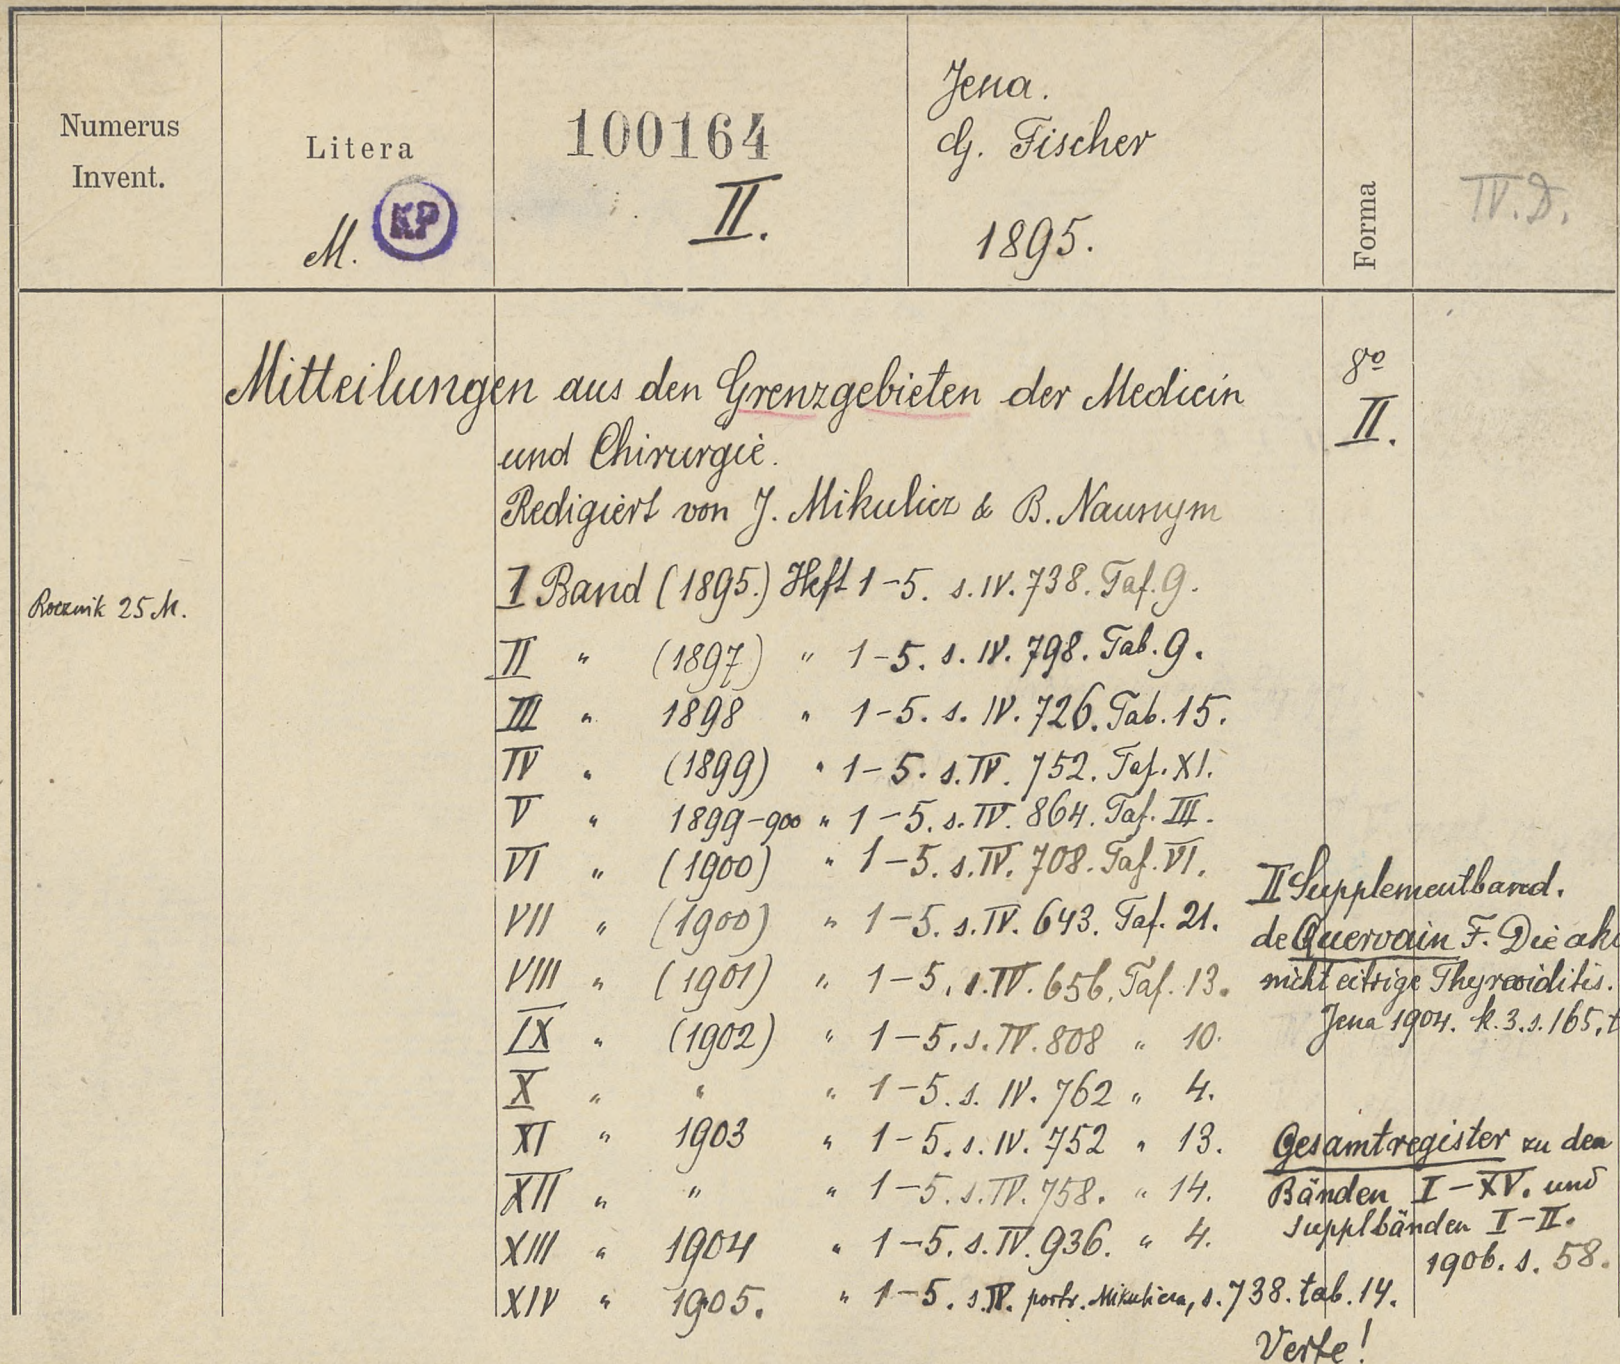 Numerus
Invent.
Litera
M.
KP
100164
II.
Jena.
G. Fischer
1895.
Forma
IV. D.
Mitteilungen aus den Grenzgebieten der Medicin
und Chirurgie.
8º
II.
Redigiert von J. Mikulicz & B. Naunym
Rocznik 25 M.
I Band (1895.) Heft 1-5. s. IV. 738. Taf. 9.
II " (1897) " 1-5. s. IV. 798. Tab. 9.
III " 1898 " 1-5. s. IV. 726. Tab. 15.
IV " (1899) " 1-5. s. IV. 752. Taf. XI.
V " 1899-900 " 1-5. s. IV. 864. Taf. III.
VI " (1900) " 1-5. s. IV. 708. Taf. VI.
VII " (1900) " 1-5. s. IV. 643. Taf. 21.
VIII " (1901) " 1-5. s. IV. 656. Taf. 13.
IX " (1902) " 1-5. s. IV. 808 " 10.
X " " " 1-5. s. IV. 762 " 4.
XI " 1903 " 1-5. s. IV. 752 " 13.
XII " " " 1-5. s. IV. 758. " 14.
XIII " 1904 " 1-5. s. IV. 936. " 4.
XIV " 1905. " 1-5. s. IV. portr. Mikulicza, s. 738. tab. 14.
II Supplementband.
de Quervain F. Die
nicht eitrige Thyreoiditis.
Jena 1904. k. 3. s. 165, t
Gesamtregister zu den
Bänden I-XV. und
Supplbänden I-II.
1906. s. 58.
Verte!